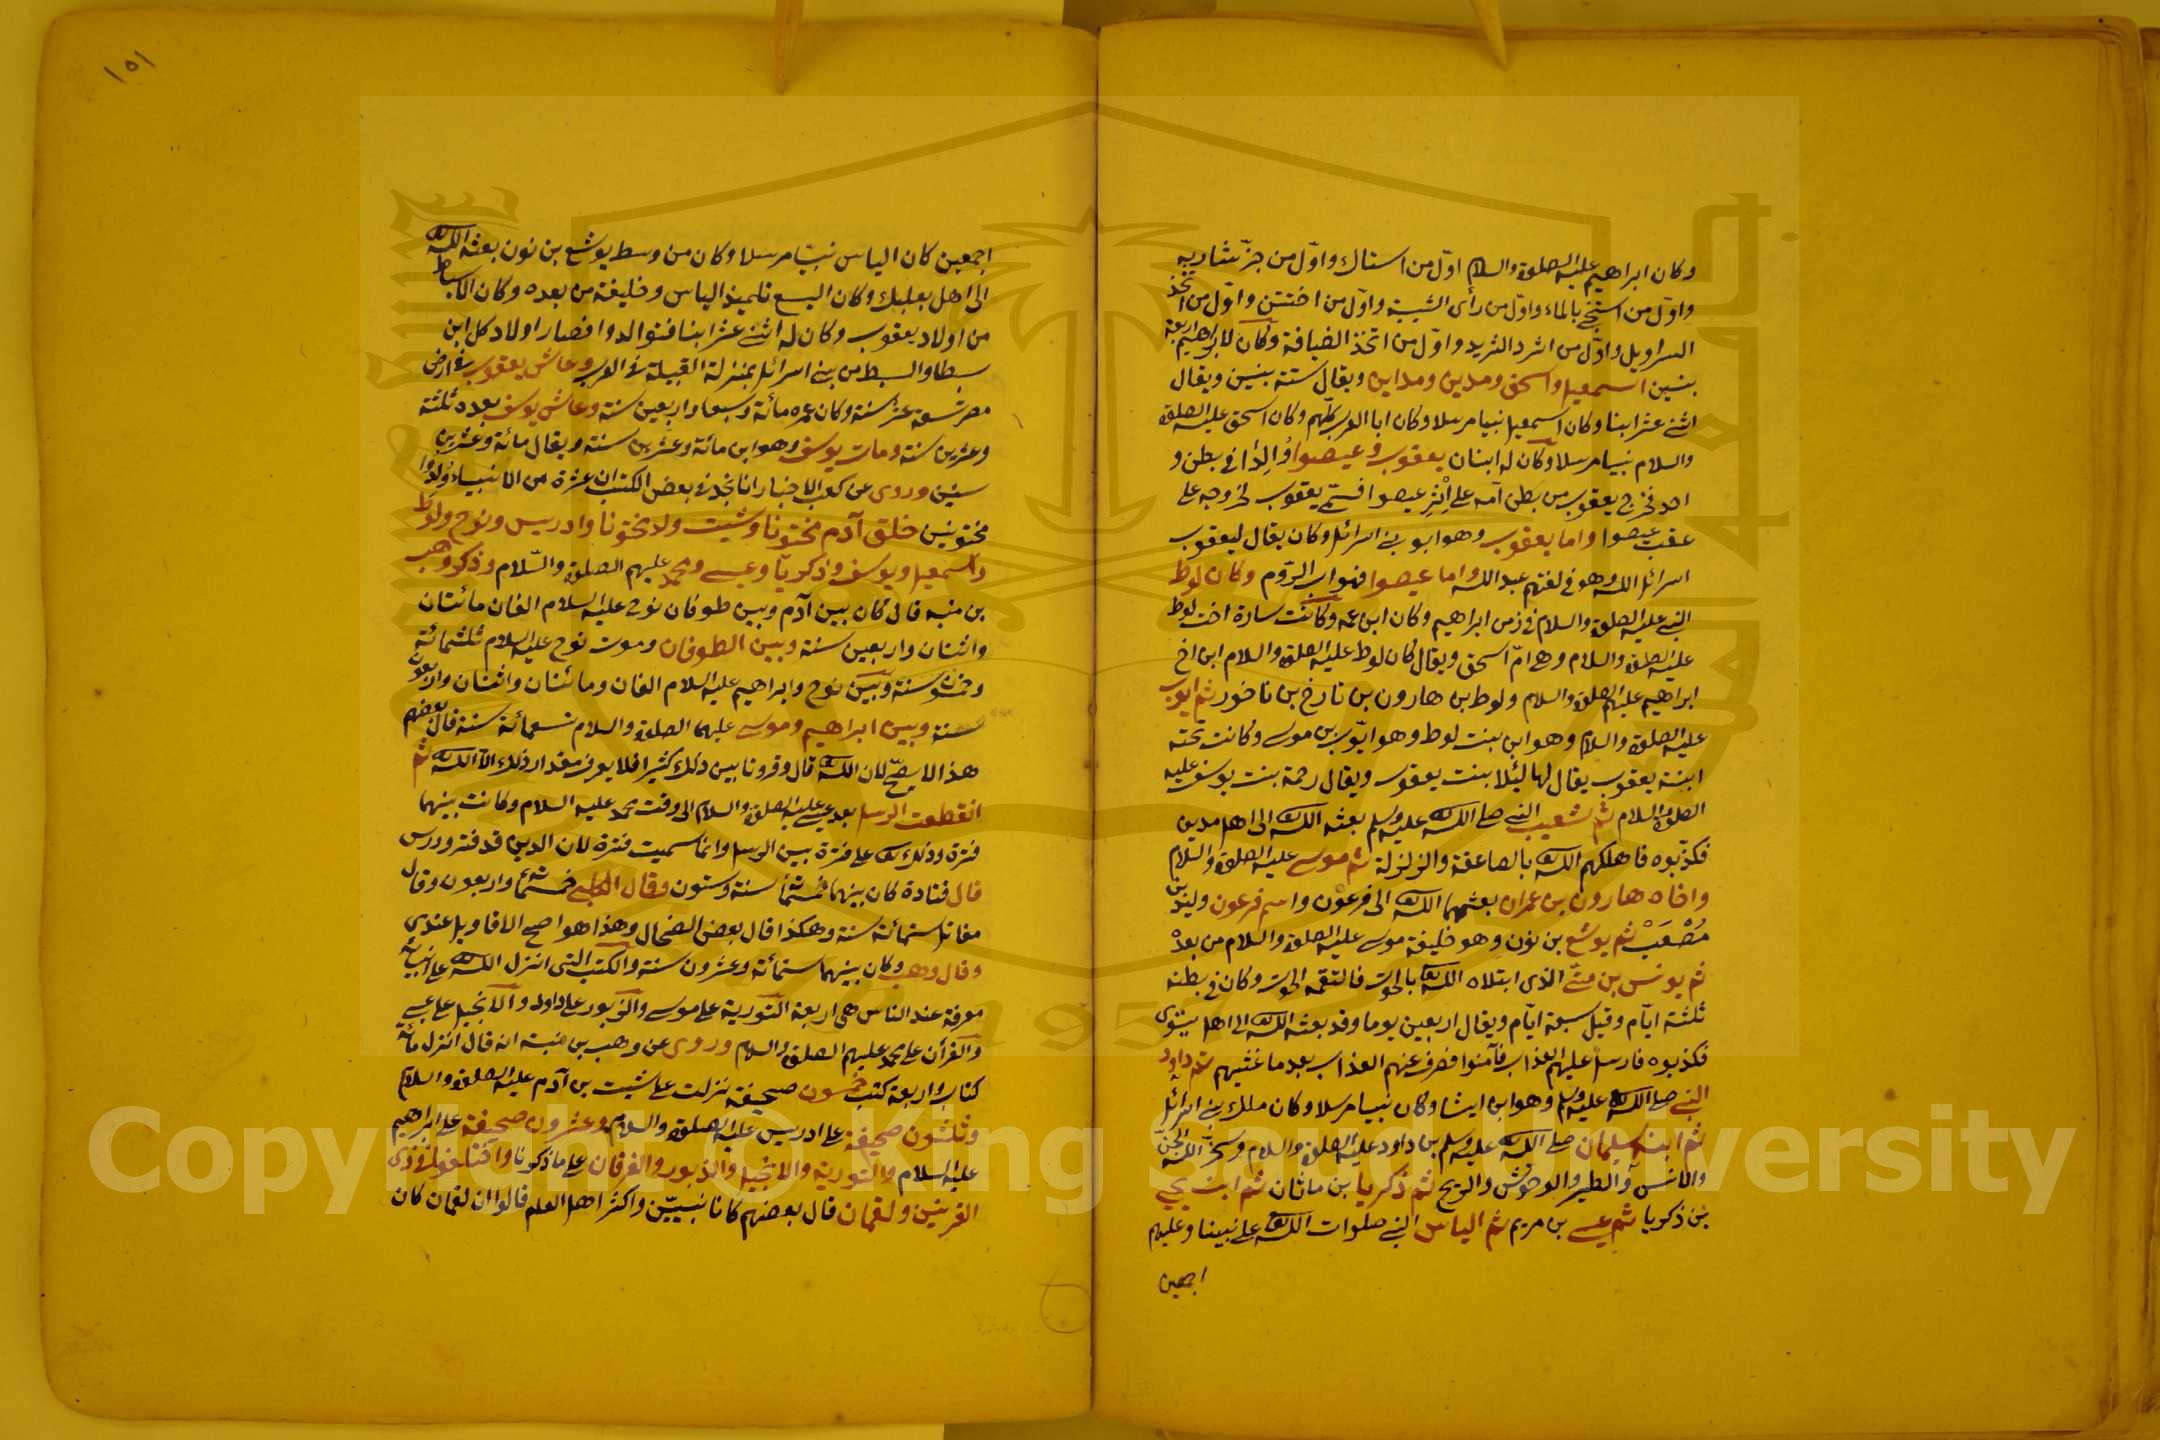 وكان ابراهيم عليه الصلوة والسلام اوّل من استاك واوّل من جزّ شاربه
واوّل من استنجى بالماء واوّل من رأى الشيبة واوّل من اختتن واوّل من اتخذ
السراويل واوّل من اثرد الثريد واوّل من اتخذ الضيافة وكان لابراهيم اربعة
بنين اسمعيل واسحق ومدين ومداين ويقال ستة بنين ويقال
اثنى عشر ابنا وكان اسمعيل نبيا مرسلا وكان ابا العرب كلّهم وكان اسحق عليه الصلوة
والسلام نبيا مرسلا وكان له ابنان يعقوب وعيصوا وُلِدا في بطن و
احد فخرج يعقوب من بطن امه على اثر عيصوا فسمّى يعقوب لخروجه على
عقب عيصوا واما يعقوب وهو ابو بنى اسرائل وكان يقال ليعقوب
اسرائل الله وهو فى لغتهم عبد الله واما عيصوا فهو اب الرّوم وكان لوط
النبى عليه الصلوة والسلام فى زمن ابراهيم وكان ابن عمه وكانت سارة اخت لوط
عليه الصلوة والسلام وهى امّ اسحق ويقال كان لوط عليه الصلوة والسلام ابن اخ
ابراهيم عليهم الصلوة والسلام ولوط بن هارون بن تارخ بن ناخور ثم ايوب
عليه الصلوة والسلام وهو ابن بنت لوط وهو ايّوب بن موسى وكانت تحته
ابنة يعقوب يقال لها ليئلا بنت يعقوب ويقال رحمة بنت يوسف عليه
الصلوة والسلام ثم شعيب النبى صلى الله عليه وسلم بعثه الله الى اهل مدين
فكذّبوه فاهلكهم الله بالصاعقة والزلزلة ثم موسى عليه الصلوة والسلام
واخاه هارون بن عمران بعثهما الله الى فرعون واسم فرعون وليد بن
مُصْعَبْ ثم يوشع بن نون وهو خليفة موسى عليه الصلوة والسلام من بعده
ثم يونس بن متّى الذى ابتلاه الله بالحوت فالتقمه الحوت وكان فى بطنه
ثلثة ايّام وقيل سبعة ايّام ويقال اربعين يوما وقد بعثه الله الى اهل نينوى
فكذبوه فارسل عليهم العذاب فآمنوا فصرف عنهم العذاب بعد ما غشيهم ثم داود
النبى صلى الله عليه وسلم وهو ابن ايشا وكان نبيا مرسلا وكان ملك بنى اسرائل
ثم ابنه سليمان صلى الله عليه وسلم بن داود عليه الصلوة والسلام وسخّر الله الجن
والانس والطير والوحوش والريح ثم ذكريا بن ماثان ثم ابنه يحيى
بن ذكريا ثم عيسى بن مريم ثم الياس النبى صلوات الله على نبينا وعليهم
اجمعين
١٥١
اجمعين كان الياس نبيّا مرسلا وكان من وسط يوشع بن نون بعثه الله
الى اهل بعلبك وكان اليسع تلميذ الياس وخليفة من بعده وكان الاسباط
من اولاد يعقوب وكان له اثنى عشر ابنا فتوالدوا فصار اولاد كل ابن
سبطا والسبط من بنى اسرائل بمنزلة القبيلة فى العرب وعاش يعقوب فى ارض
مصر تسعة عشر سنة وكان عمره مائة وسبعا واربعين سنة وعاش يوسف بعده ثلثة
وعشرين سنة ومات يوسف وهو ابن مائة وعشرين سنة ويقال مائة وعشرين
سنين وروى عن كعب الاحبار انا نجد فى بعض الكتب ان عشرة من الانبياء وُلِدُوا
مختونين خلق آدم مختونا وشيت ولد مختونا وادريس ونوح ولوط
واسمعيل ويوسف وزكريّا وعيسى ومحمد عليهم الصلوة والسّلام وذكر وهب
بن منبه قال كان بين آدم وبين طوفان نوح عليه السلام الفان مائتان
واثنتان واربعين سنة وبين الطوفان وموت نوح عليه السلام ثلثمائة
وخمسون سنة وبين نوح وابراهيم عليه السلام الفان ومائتان واثنتان واربعون
سنة وبين ابراهيم وموسى عليهما الصلوة والسلام تسعمائة سنة قال بعضهم
هذا لا يصحّ لان الله قال وقرونا بين ذلك كثيرا فلا يعرف مقدار ذلك الا الله ثم
انقطعت الرسل بعد عيسى عليه الصلوة والسلام الى وقت محمد عليه السلام وكانت بينهما
فترة وذلك على فترة بين الرسل وانما سميت فترة لان الدين قد فتر ودرس
قال قتادة كان بينهما خمسمائة سنة وستون وقال الكلبى خمسمائة واربعون وقال
مقاتل ستمائة سنة وهكذا قال بعض الضحاك وهذا هو اصح الاقاويل عندى
وقال وهب وكان بينهما ستمائة وعشرون سنة والكتب التى انزل الله على انبيائه
معرفة عند الناس هى اربعة التورية على موسى والزبور على داود والانجيل على عيسى
والقرآن على محمد عليهم الصلوة والسلام وروى عن وهب بن منبه انه قال انزل مائة
كتاب واربعة كتب خمسون صحيفة نزلت على شيت بن آدم عليه الصلوة والسلام
وثلثون صحيفة على ادريس عليه الصلوة والسلام وعشرون صحيفة على ابراهيم
عليه السلام والتورية والانجيل والزبور والفرقان على ما ذكرنا واختلفوا فى ذى
القرنين ولقمان قال بعضهم كانا نبييّن واكثر اهل العلم قالوا ان لقمان كان
Copyright © King Saud University
1957